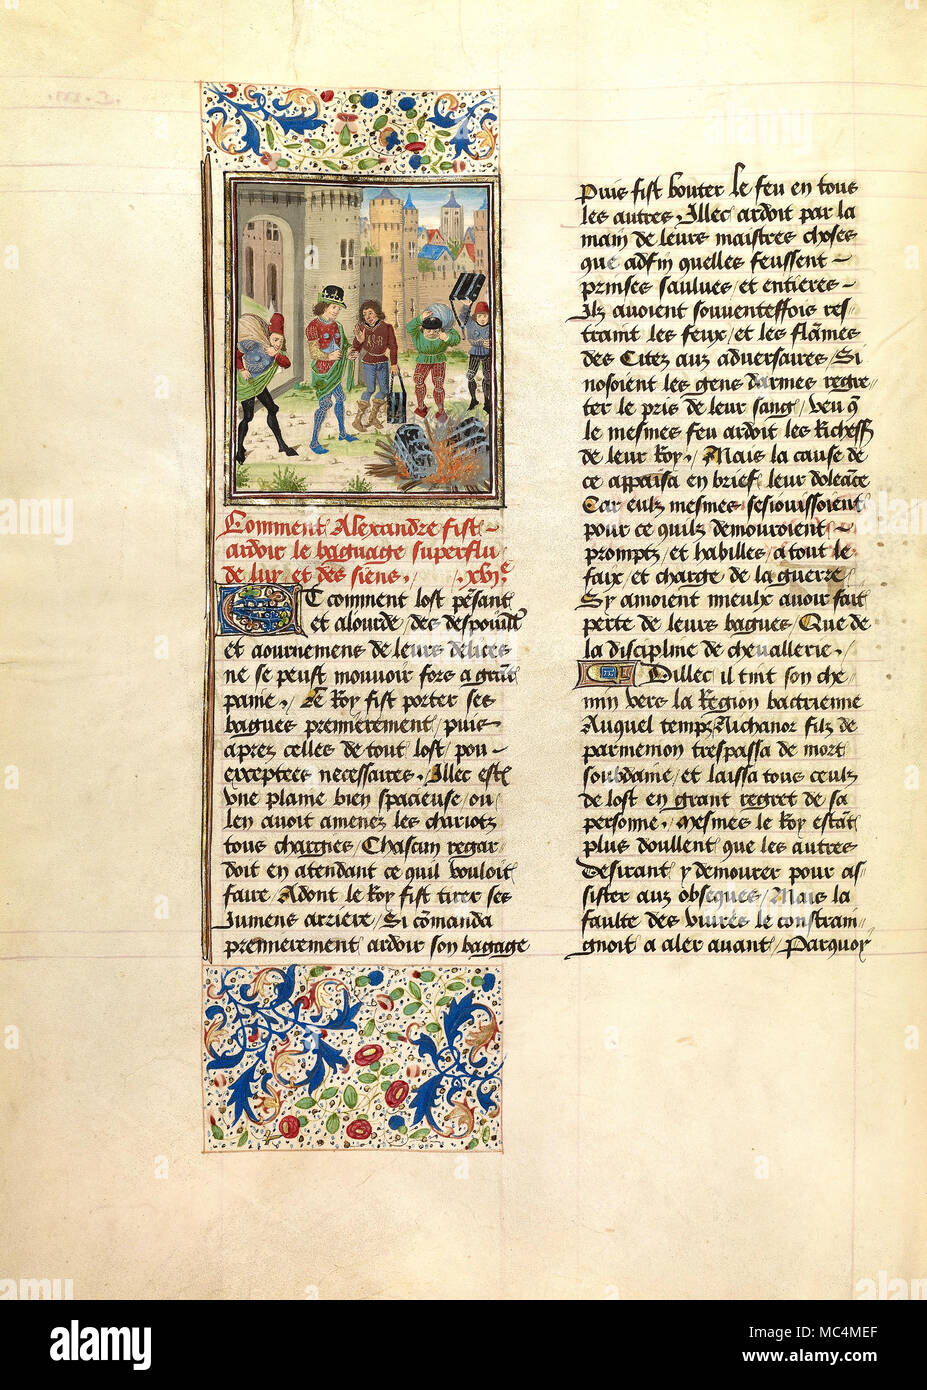 Comment Alexandre fist
ardoir le baguage superflu
de luy et des siens . xvi.e
Et comment lost pesant
et alourde des despoulles
et aournemens de leurs delices
ne se peust mouvoir fors a grāt
paine / Le Roy fist porter ses
bagues premierement / puis
aprez celles de tout lost / pou
exceptees necessaires / Illec est
vne plaine bien spacieuse / ou
len auoit amenez les chariotz
tous chargies / Chascun regar
doit en atendant ce quil vouloit
faire / Adont le Roy fist tirer ses
Jumens arriere / Si cōmanda
premierement ardoir son bagage
Puis fist bouter le feu en tous
les autres . Illec ardoit par la
main de leurs maistres choses
que adfin quelles feussent
prinses saulues / et entieres
Ilz auoient souuenteffois res
traint les feux / et les flāmes
des Citez aux aduersaires / Si
nosoient les gens darmes regre
ter le pris de leur sang / veu q̄
le mesmes feu ardoit les Richess
de leur Roy . Mais la cause de
ce appaisa en brief / leur doleāce
Car eulx mesmes sesiouissoient
pour ce quilz demouroient
promptz / et habilles / a tout le
faix / et charge de la guerre
Sy amoient mieulx auoir fait
perte de leurs bagues / Que de
la discipline de cheuallerie .
Dillec il tint son che
min vers la Region bactrienne
Auquel tempz Nichanor filz de
parmenion trespassa de mort
soubdaine / et laissa tous ceulx
de lost en grant regret de sa
personne . Mesmes le Roy estāt
plus doullent que les autres
Desirant y demourer pour as
sister aux obseques / Mais la
faulte des viures le constrain
gnoit a aler auant / Parquoy
alamy
MC4MEF
www.alamy.com